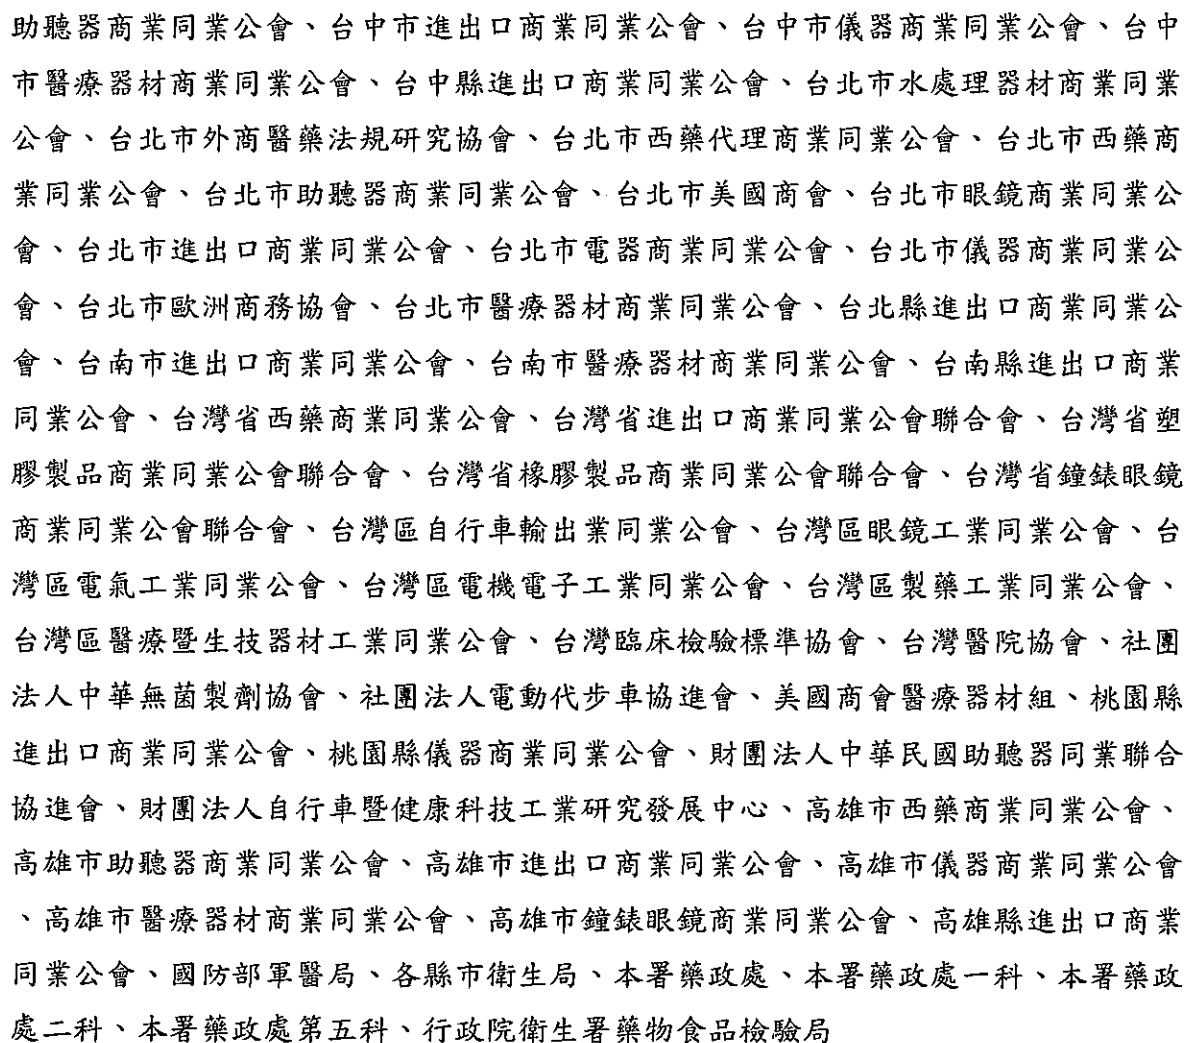 助聽器商業同業公會、台中市進出口商業同業公會、台中市儀器商業同業公會、台中
市醫療器材商業同業公會、台中縣進出口商業同業公會、台北市水處理器材商業同業
公會、台北市外商醫藥法規研究協會、台北市西藥代理商業同業公會、台北市西藥商
業同業公會、台北市助聽器商業同業公會、台北市美國商會、台北市眼鏡商業同業公
會、台北市進出口商業同業公會、台北市電器商業同業公會、台北市儀器商業同業公
會、台北市歐洲商務協會、台北市醫療器材商業同業公會、台北縣進出口商業同業公
會、台南市進出口商業同業公會、台南市醫療器材商業同業公會、台南縣進出口商業
同業公會、台灣省西藥商業同業公會、台灣省進出口商業同業公會聯合會、台灣省塑
膠製品商業同業公會聯合會、台灣省橡膠製品商業同業公會聯合會、台灣省鐘錶眼鏡
商業同業公會聯合會、台灣區自行車輸出業同業公會、台灣區眼鏡工業同業公會、台
灣區電氣工業同業公會、台灣區電機電子工業同業公會、台灣區製藥工業同業公會、
台灣區醫療暨生技器材工業同業公會、台灣臨床檢驗標準協會、台灣醫院協會、社團
法人中華無菌製劑協會、社團法人電動代步車協進會、美國商會醫療器材組、桃園縣
進出口商業同業公會、桃園縣儀器商業同業公會、財團法人中華民國助聽器同業聯合
協進會、財團法人自行車暨健康科技工業研究發展中心、高雄市西藥商業同業公會、
高雄市助聽器商業同業公會、高雄市進出口商業同業公會、高雄市儀器商業同業公會
、高雄市醫療器材商業同業公會、高雄市鐘錶眼鏡商業同業公會、高雄縣進出口商業
同業公會、國防部軍醫局、各縣市衛生局、本署藥政處、本署藥政處一科、本署藥政
處二科、本署藥政處第五科、行政院衛生署藥物食品檢驗局